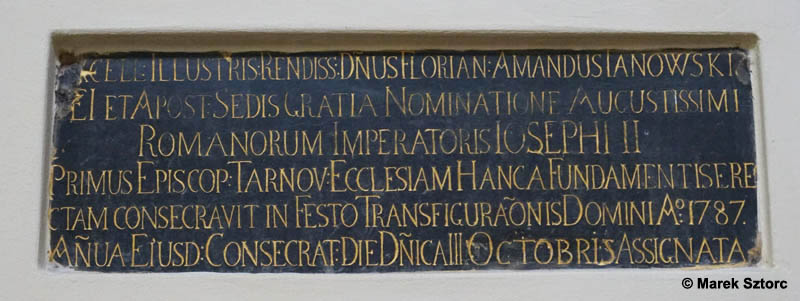 XCELL: ILLUSTRIS: RENDISS: DÑUS FLORIAN: AMANDUS IANOWSKI
EI ET APOST: SEDIS GRATIA NOMINATIONE AUGUSTISSIMI
ROMANORUM IMPERATORIS IOSEPHI II
PRIMUS EPISCOP: TARNOV: ECCLESIAM HANC A FUNDAMENTIS ERE
CTAM CONSECRAVIT IN FESTO TRANSFIGURAÕNIS DOMINI Aº: 1787.
AÑUA EIUSD: CONSECRAT: DIE DÑICA III: OCTOBRIS ASSIGNATA
© Marek Sztorc